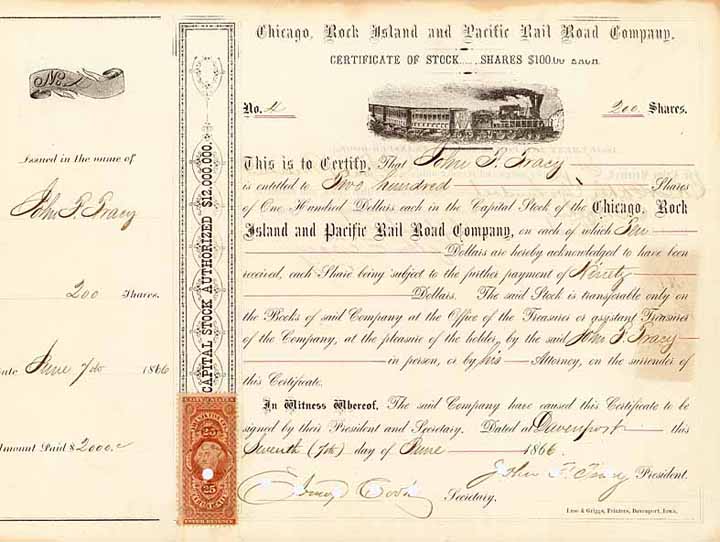 No. 1
Issued in the name of
John F. Tracy
200 Shares.
Date June 7th 1866
Amount Paid $ 2000.
CAPITAL STOCK AUTHORIZED $12.000.000.
UNITED STATES
25
25
INTER. REVENUE
Chicago, Rock Island and Pacific Rail Road Company.
CERTIFICATE OF STOCK..... SHARES $100.00 EACH.
No. 4
200 Shares.
This is to Certify, That John F. Tracy
is entitled to Two hundred Shares
of One Hundred Dollars each in the Capital Stock of the Chicago, Rock
Island and Pacific Rail Road Company, on each of which Ten
Dollars are hereby acknowledged to have been
received, each Share being subject to the further payment of Ninety
Dollars. The said Stock is transferable only on
the Books of said Company at the Office of the Treasurer or assistant Treasurer
of the Company, at the pleasure of the holder, by the said John F. Tracy
in person, or by his Attorney, on the surrender of
this Certificate.
In Witness Whereof, The said Company have caused this Certificate to be
signed by their President and Secretary. Dated at Davenport this
Seventh (7th) day of June 1866.
John F. Tracy President.
Ebenr Cook
Secretary.
Luse & Griggs, Printers, Davenport, Iowa.